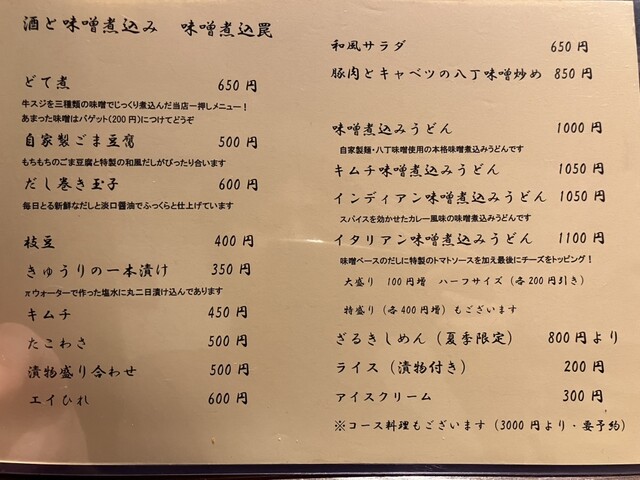 酒と味噌煮込み 味噌煮込罠
どて煮 650円
牛スジを三種類の味噌でじっくり煮込んだ当店一押しメニュー！
あまった味噌はバゲット(200円)につけてどうぞ
自家製ごま豆腐 500円
もちもちのごま豆腐と特製の和風だしがぴったり合います
だし巻き玉子 600円
毎日とる新鮮なだしと淡口醤油でふっくらと仕上げています
枝豆 400円
きゅうりの一本漬け 350円
πウォーターで作った塩水に丸二日漬け込んであります
キムチ 450円
たこわさ 500円
漬物盛り合わせ 500円
エイひれ 600円
和風サラダ 650円
豚肉とキャベツの八丁味噌炒め 850円
味噌煮込みうどん 1000円
自家製麺・八丁味噌使用の本格味噌煮込みうどんです
キムチ味噌煮込みうどん 1050円
インディアン味噌煮込みうどん 1050円
スパイスを効かせたカレー風味の味噌煮込みうどんです
イタリアン味噌煮込みうどん 1100円
味噌ベースのだしに特製のトマトソースを加え最後にチーズをトッピング！
大盛り 100円増 ハーフサイズ（各200円引き）
特盛り（各400円増）もございます
ざるきしめん（夏季限定） 800円より
ライス（漬物付き） 200円
アイスクリーム 300円
※コース料理もございます（3000円より・要予約）